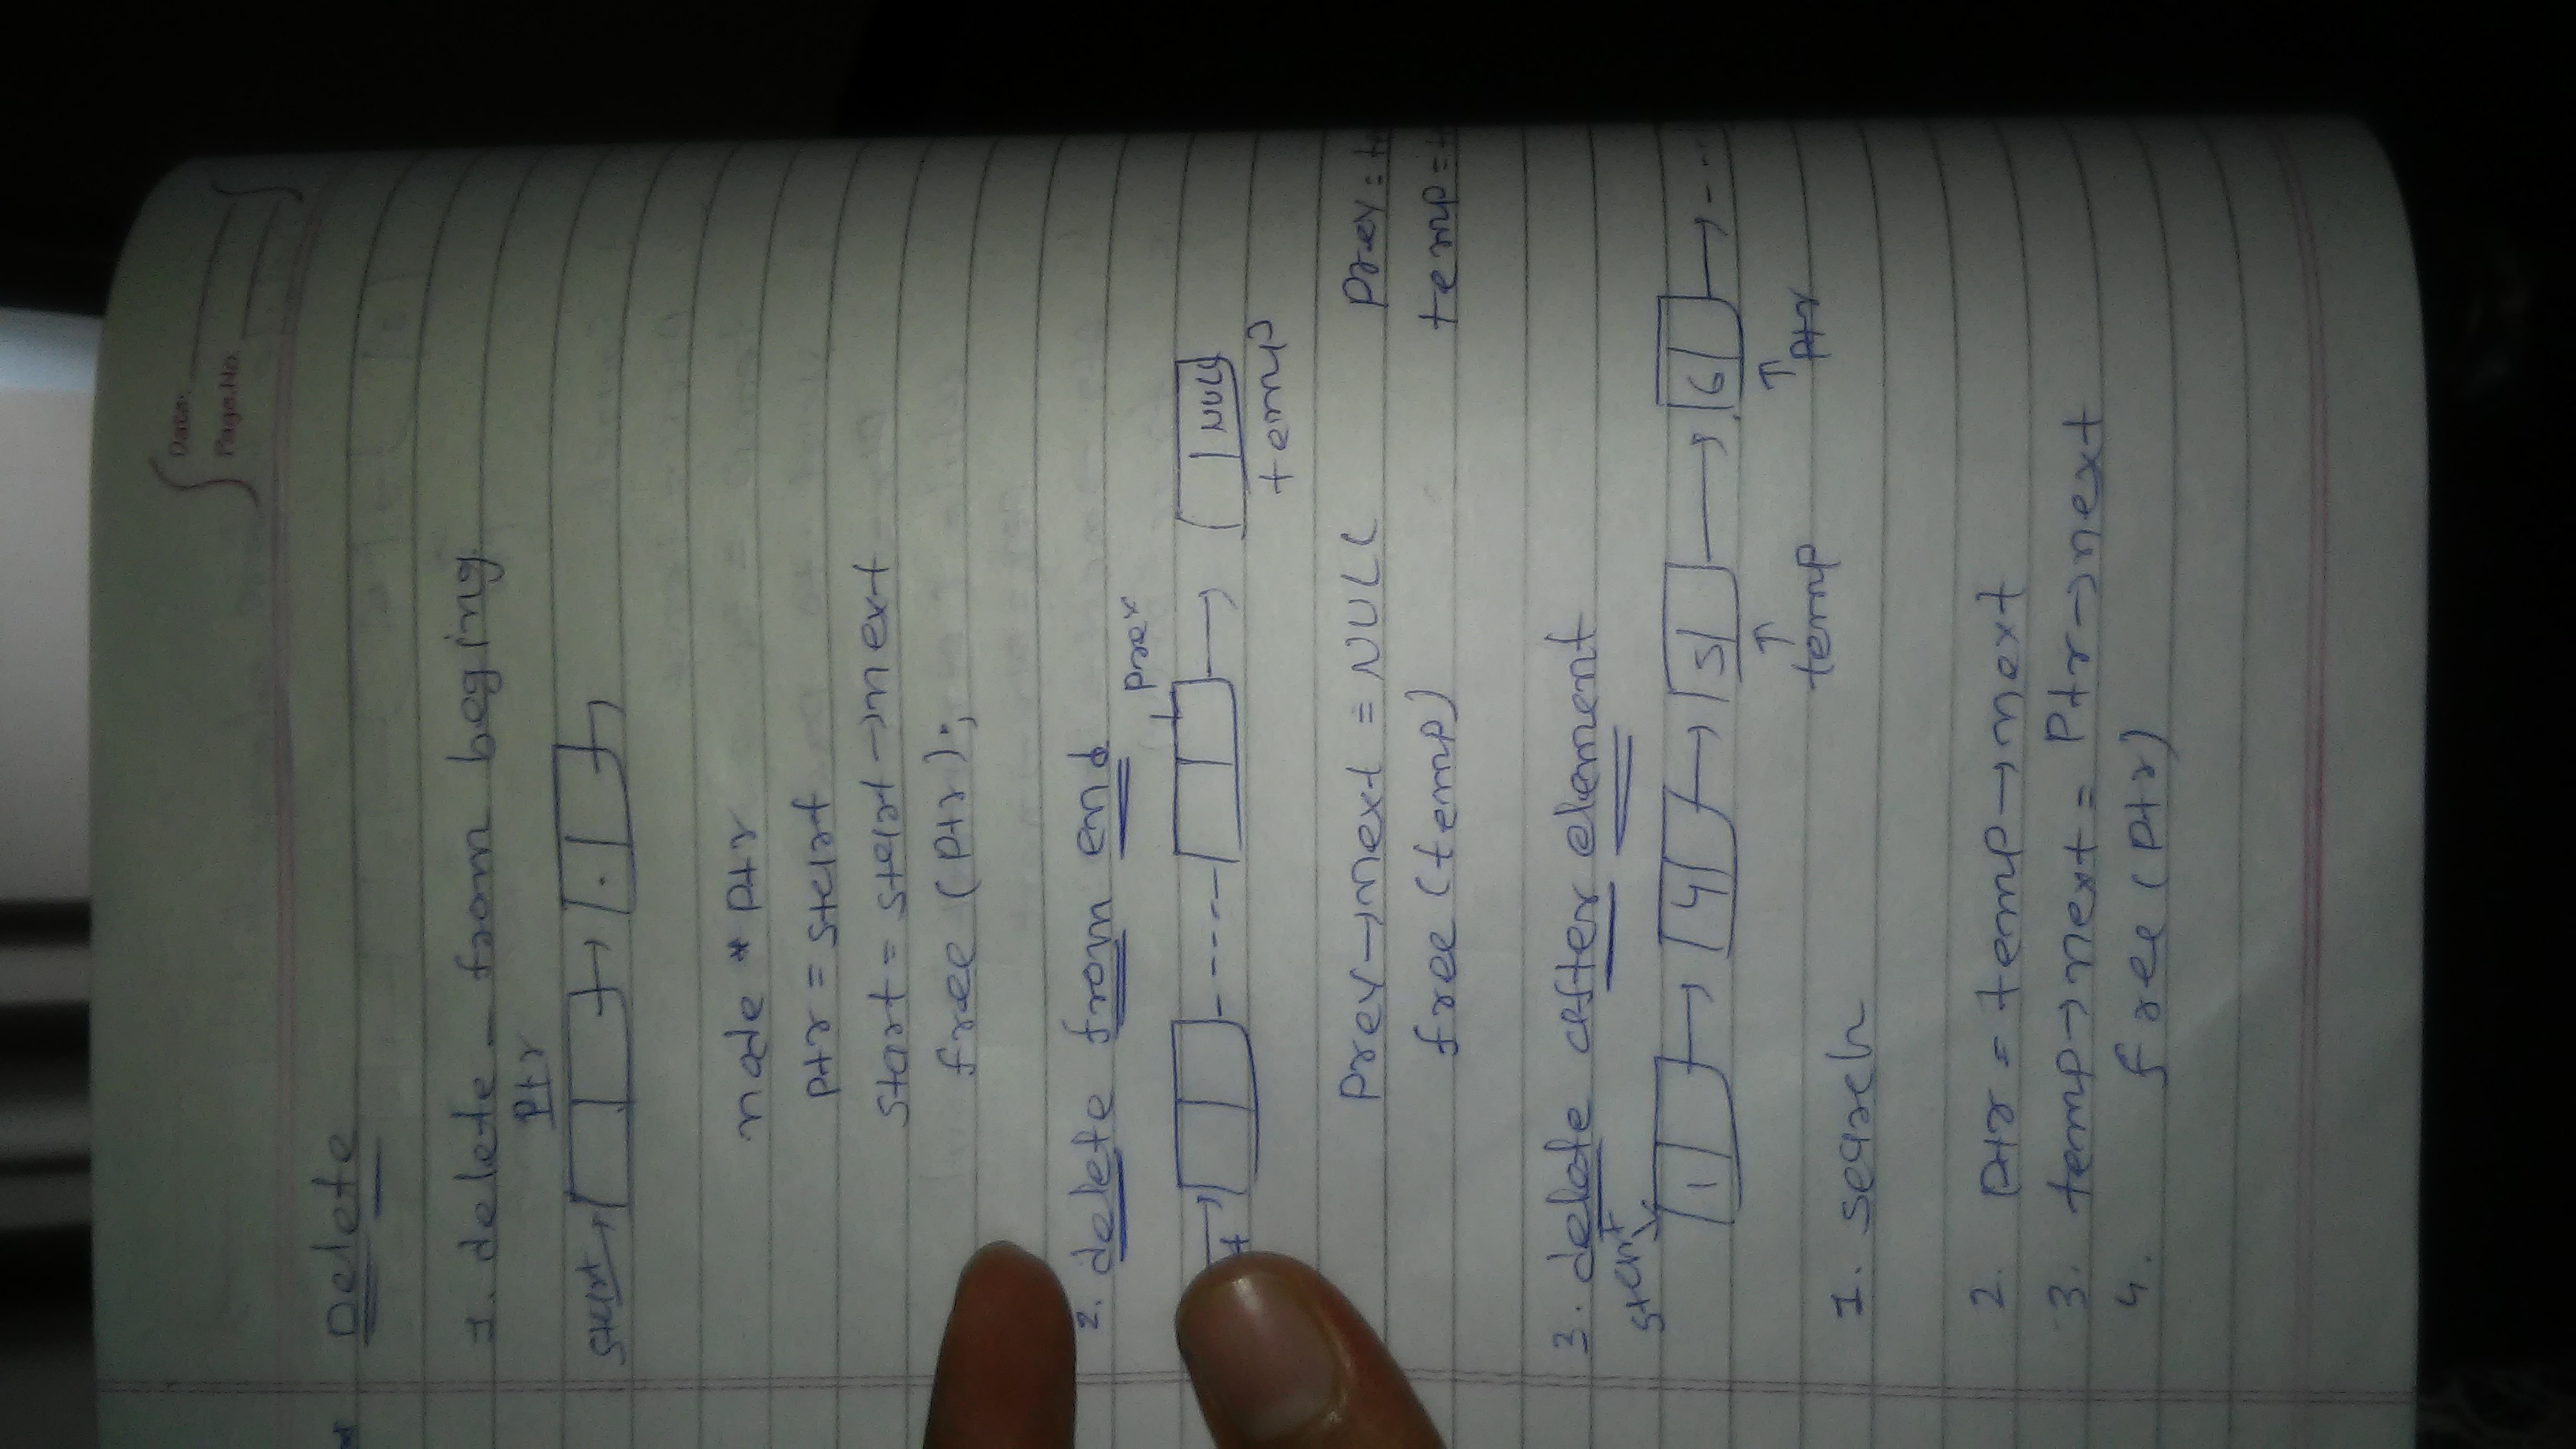 Date:
Page.No.
Delete
1. delete - from beging
ptr
start
node * ptr
ptr = start
start = start → next
free (ptr);
2. delete from end
prev
NULL
temp
prev → next = NULL
prev =
free (temp)
temp =
3. delete after element
start
1 4 5 6
temp ptr
1. search
2. ptr = temp → next
3. temp → next = ptr → next
4. free (ptr)